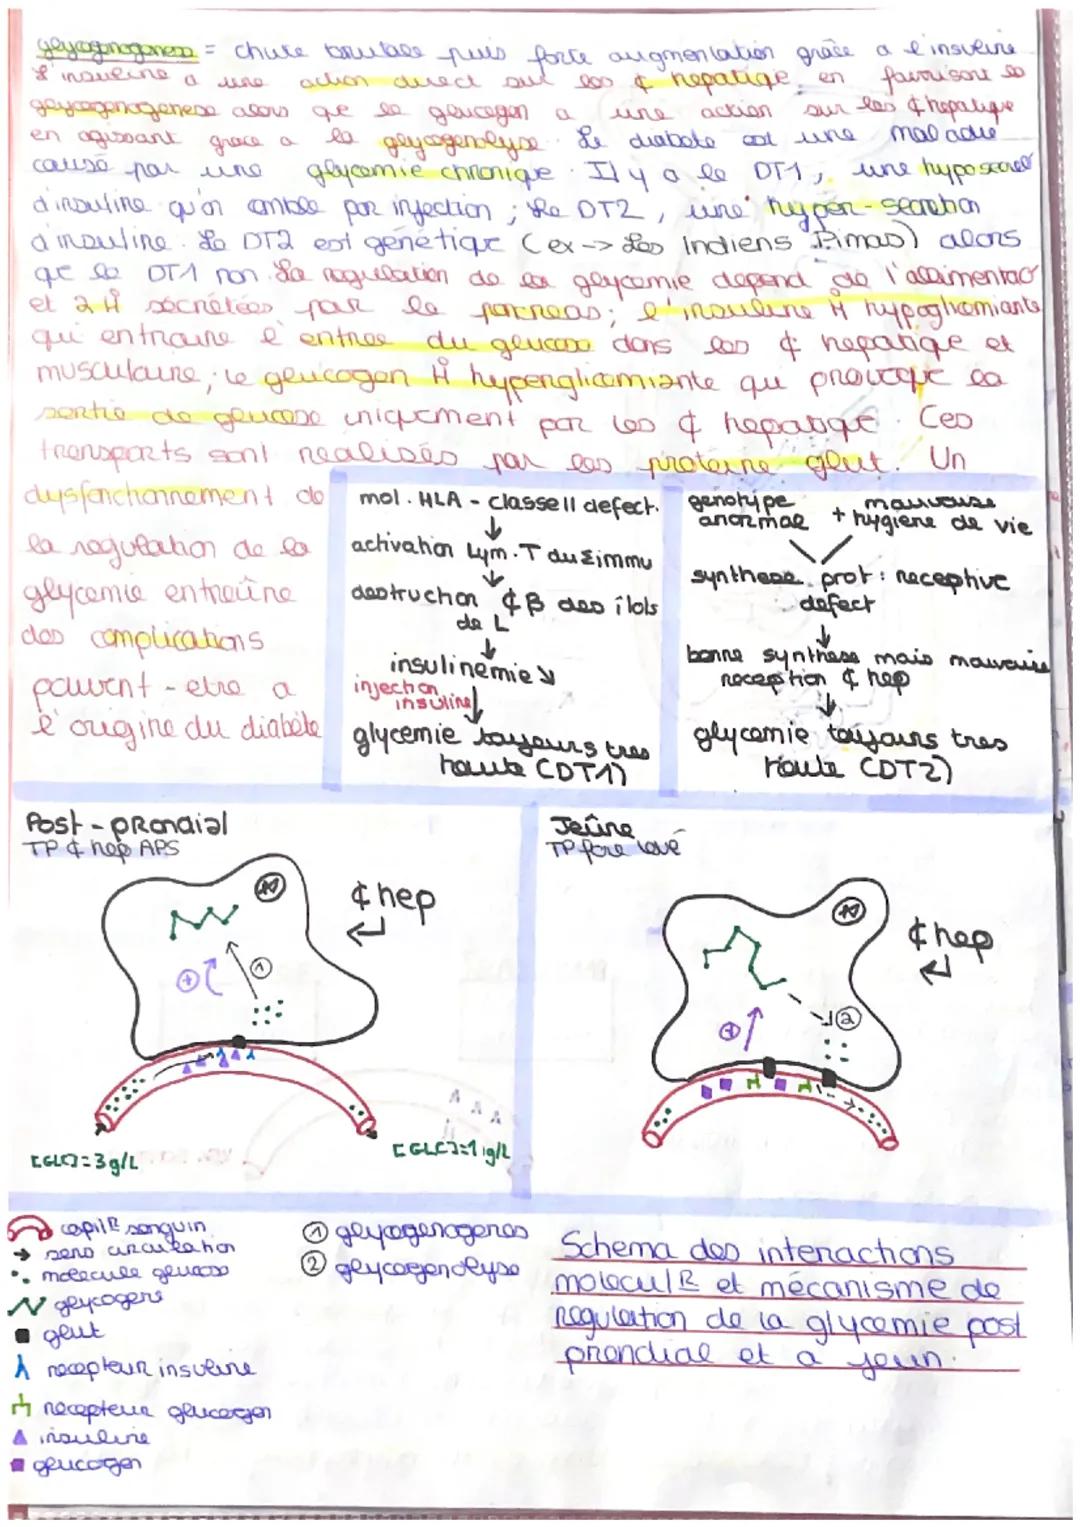 glycogenogenese = chute brutale puis forte augmentation grâce a l'insuline
L'insuline a une action direct sur les ¢ hepatiqe en favorisant la
glycogenogenese alors que le glucagon a une action sur les ¢ hepatique
en agissant grace a la glycogenolyse. Le diabete est une maladie
causé par une glycemie chronique. Il y a le DT1, une hyposecret°
d'insuline qu'on comble par injection; Le DT2, une hyper-secretion
d'insuline. Le DT2 est génétique (ex -> Les Indiens Pimas) alors
que le DT1 non. La regulation de la glycemie depend de l'alimentat°
et 2 H sécrétées par le pancreas; l'insuline H hypoglicemiante
qui entraine l'entree du glucose dans les ¢ hepatique et
musculaire, le glucogon H hyperglicemiante qui provoque la
sortie de glucose uniquement par les ¢ hepatique. Ces
transports sont realisés par les proteine glut. Un
dysfonctionnement de
la regulation de la
glycemie entraîne
des complications
pouvent-etre a
l'origine du diabète
mol. HLA - classe II defect.
↓
activation Lym. T du Σ immu
↓
destruction ¢ β des îlots
de L
↓
insulinemie ↘
injection
insuline ↓
glycemie toujours tres
haute (DT1)
genotype
anormal + mauvaise
hygiene de vie
synthese prot: receptive
defect
↓
bonne synthese mais mauvaise
reception ¢ hep
↓
glycemie toujours tres
haute (DT2)
Post-prandial
TP ¢ hep APS
¢ hep
N
+
1
[GLC]=3g/L
[GLC]=1g/L
Jeûne
TP foie lavé
¢ hep
N
+
2
capilR sanguin
sens circulation
molecule glucose
glycogene
glut
recepteur insuline
recepteur glucagon
insuline
glucogon
1 glycogenogenes
2 glycogenolyse
Schema des interactions
moleculR et mécanisme de
regulation de la glycemie post
prendial et a jeun.